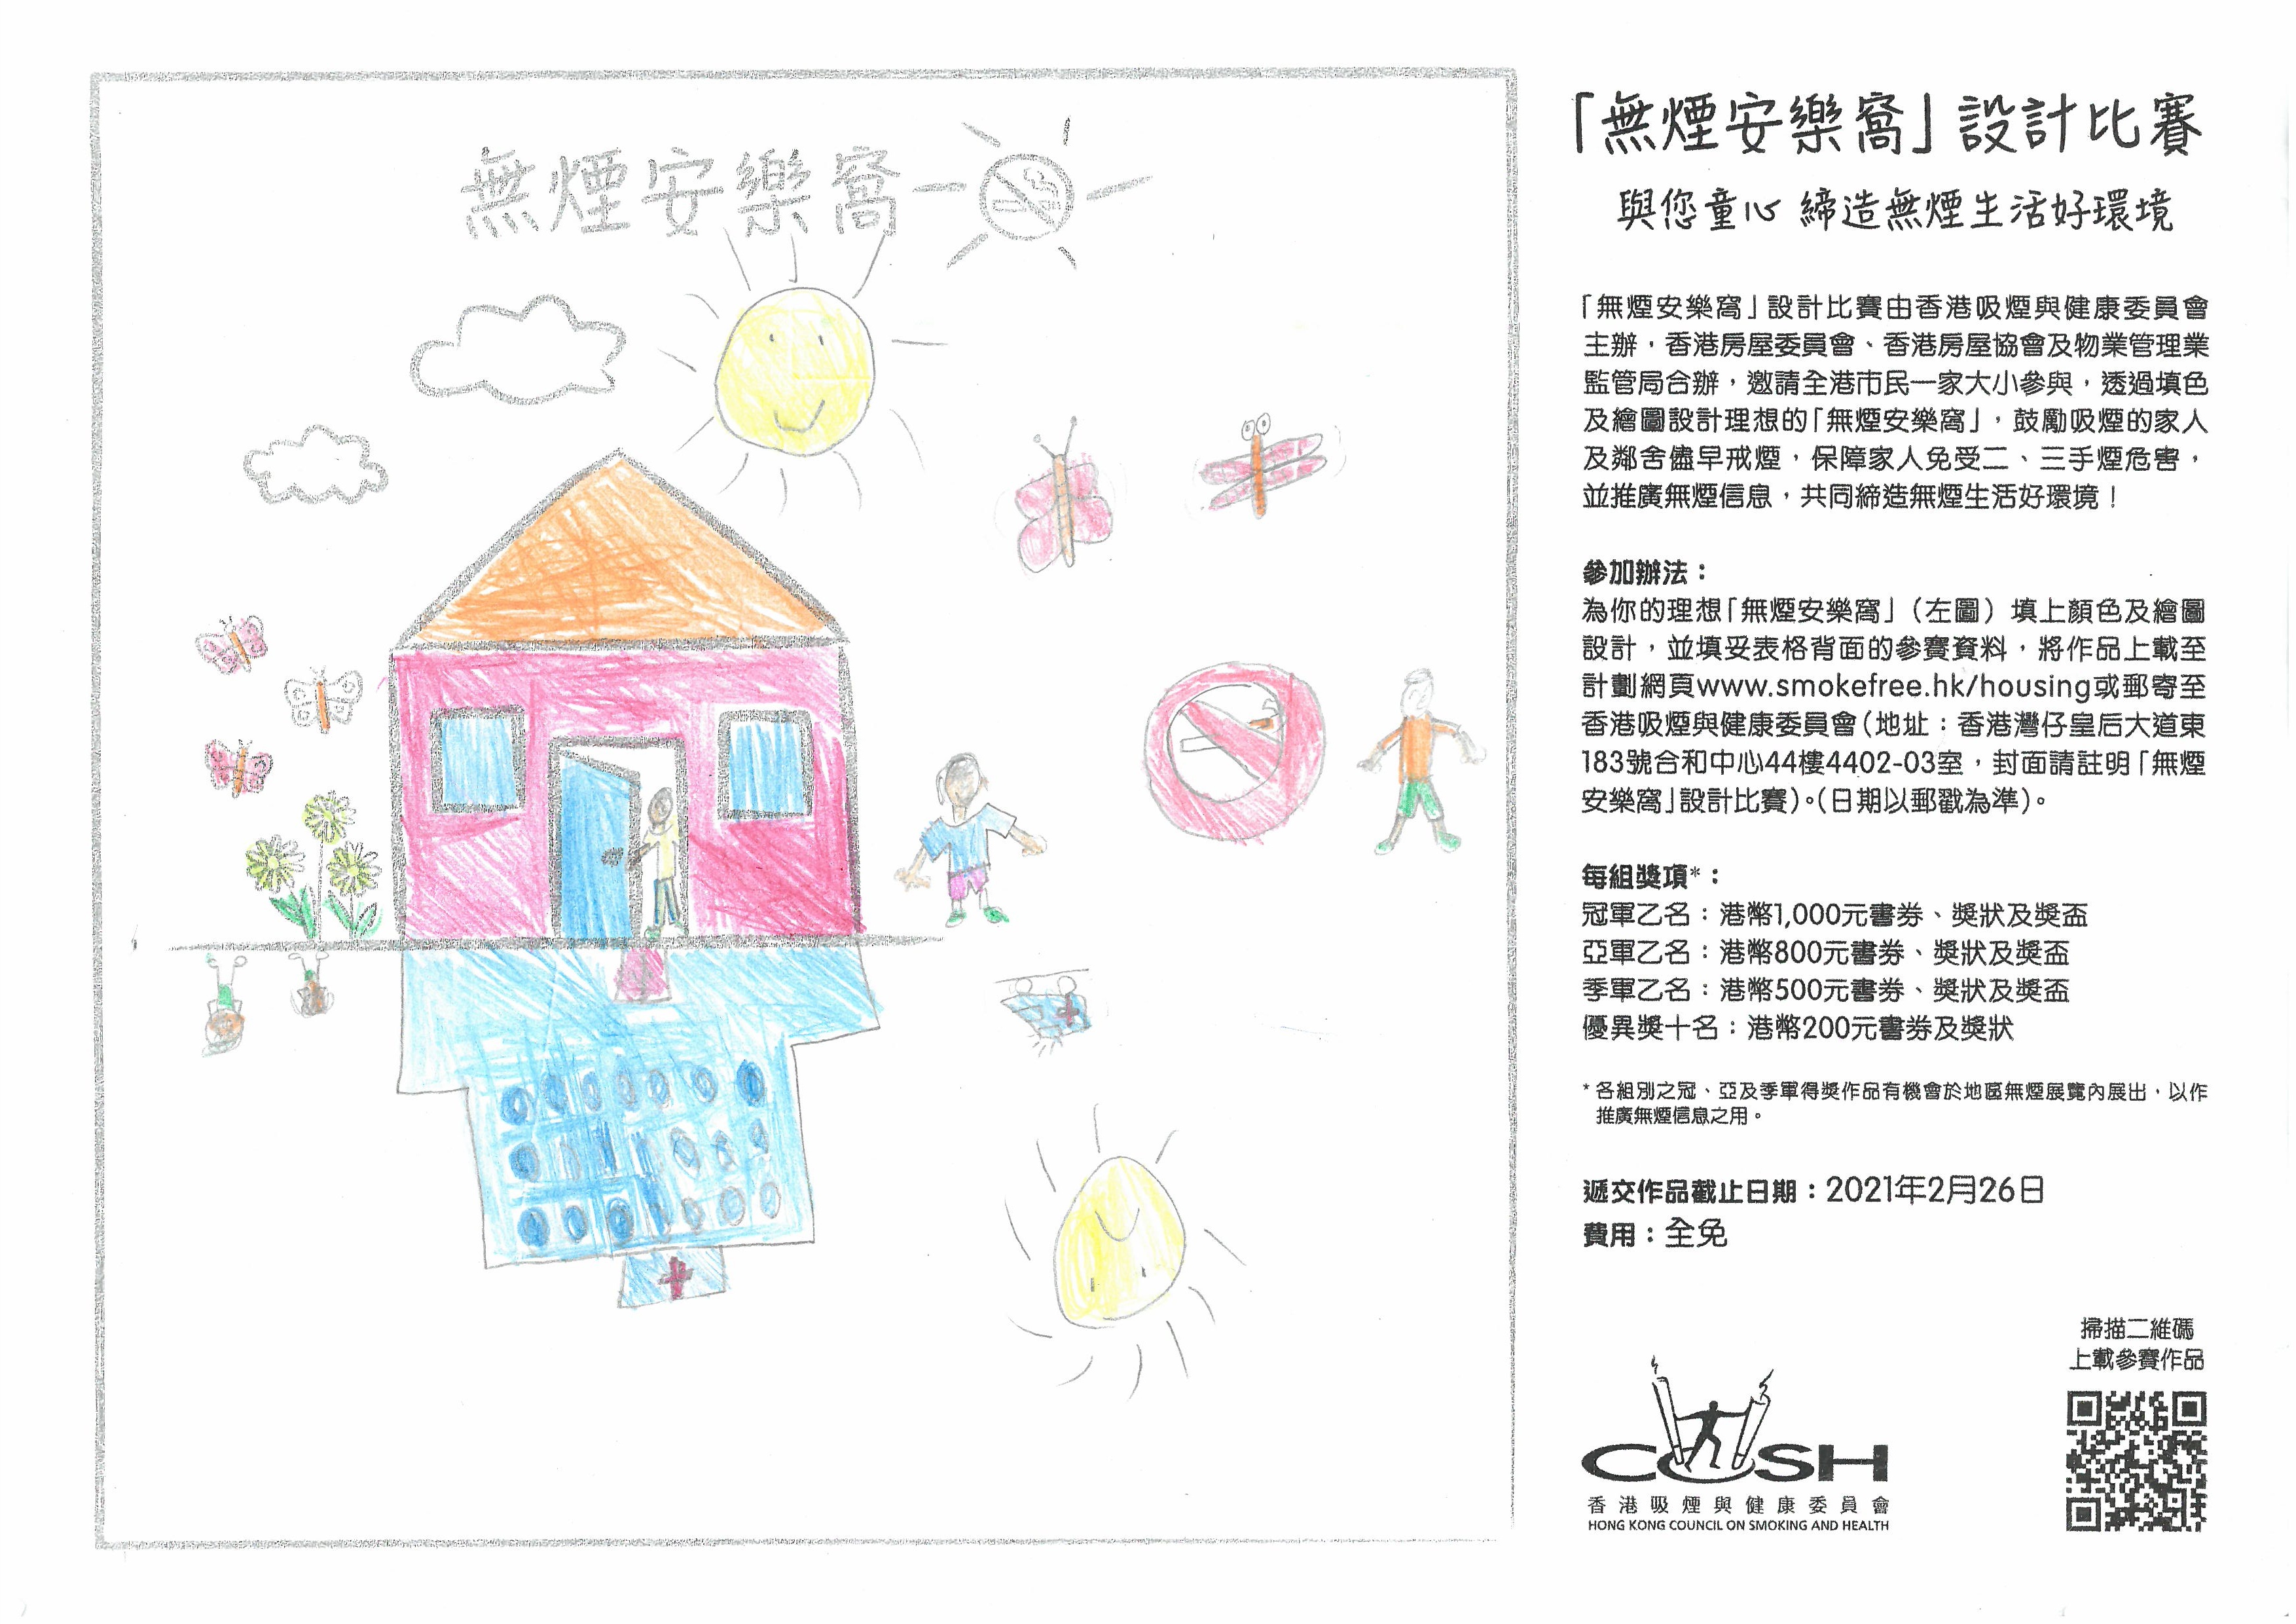 無煙安樂窩
「無煙安樂窩」設計比賽
與您童心 締造無煙生活好環境
「無煙安樂窩」設計比賽由香港吸煙與健康委員會
主辦，香港房屋委員會、香港房屋協會及物業管理業
監管局合辦，邀請全港市民一家大小參與，透過填色
及繪圖設計理想的「無煙安樂窩」，鼓勵吸煙的家人
及鄰舍儘早戒煙，保障家人免受二、三手煙危害，
並推廣無煙信息，共同締造無煙生活好環境！
參加辦法：
為你的理想「無煙安樂窩」（左圖）填上顏色及繪圖
設計，並填妥表格背面的參賽資料，將作品上載至
計劃網頁www.smokefree.hk/housing或郵寄至
香港吸煙與健康委員會（地址：香港灣仔皇后大道東
183號合和中心44樓4402-03室，封面請註明「無煙
安樂窩」設計比賽）。（日期以郵戳為準）。
每組獎項*：
冠軍乙名：港幣1,000元書券、獎狀及獎盃
亞軍乙名：港幣800元書券、獎狀及獎盃
季軍乙名：港幣500元書券、獎狀及獎盃
優異獎十名：港幣200元書券及獎狀
* 各組別之冠、亞及季軍得獎作品有機會於地區無煙展覽內展出，以作
推廣無煙信息之用。
遞交作品截止日期：2021年2月26日
費用：全免
掃描二維碼
上載參賽作品
COSH
香港吸煙與健康委員會
HONG KONG COUNCIL ON SMOKING AND HEALTH